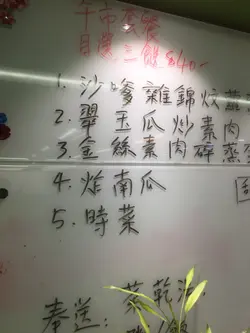 午市套餐
自選三餸 $40-
1. 沙嗲雜錦炆
2. 翠玉瓜炒素肉
3. 金絲素肉碎蒸
4. 炸南瓜
5. 時菜
奉送: